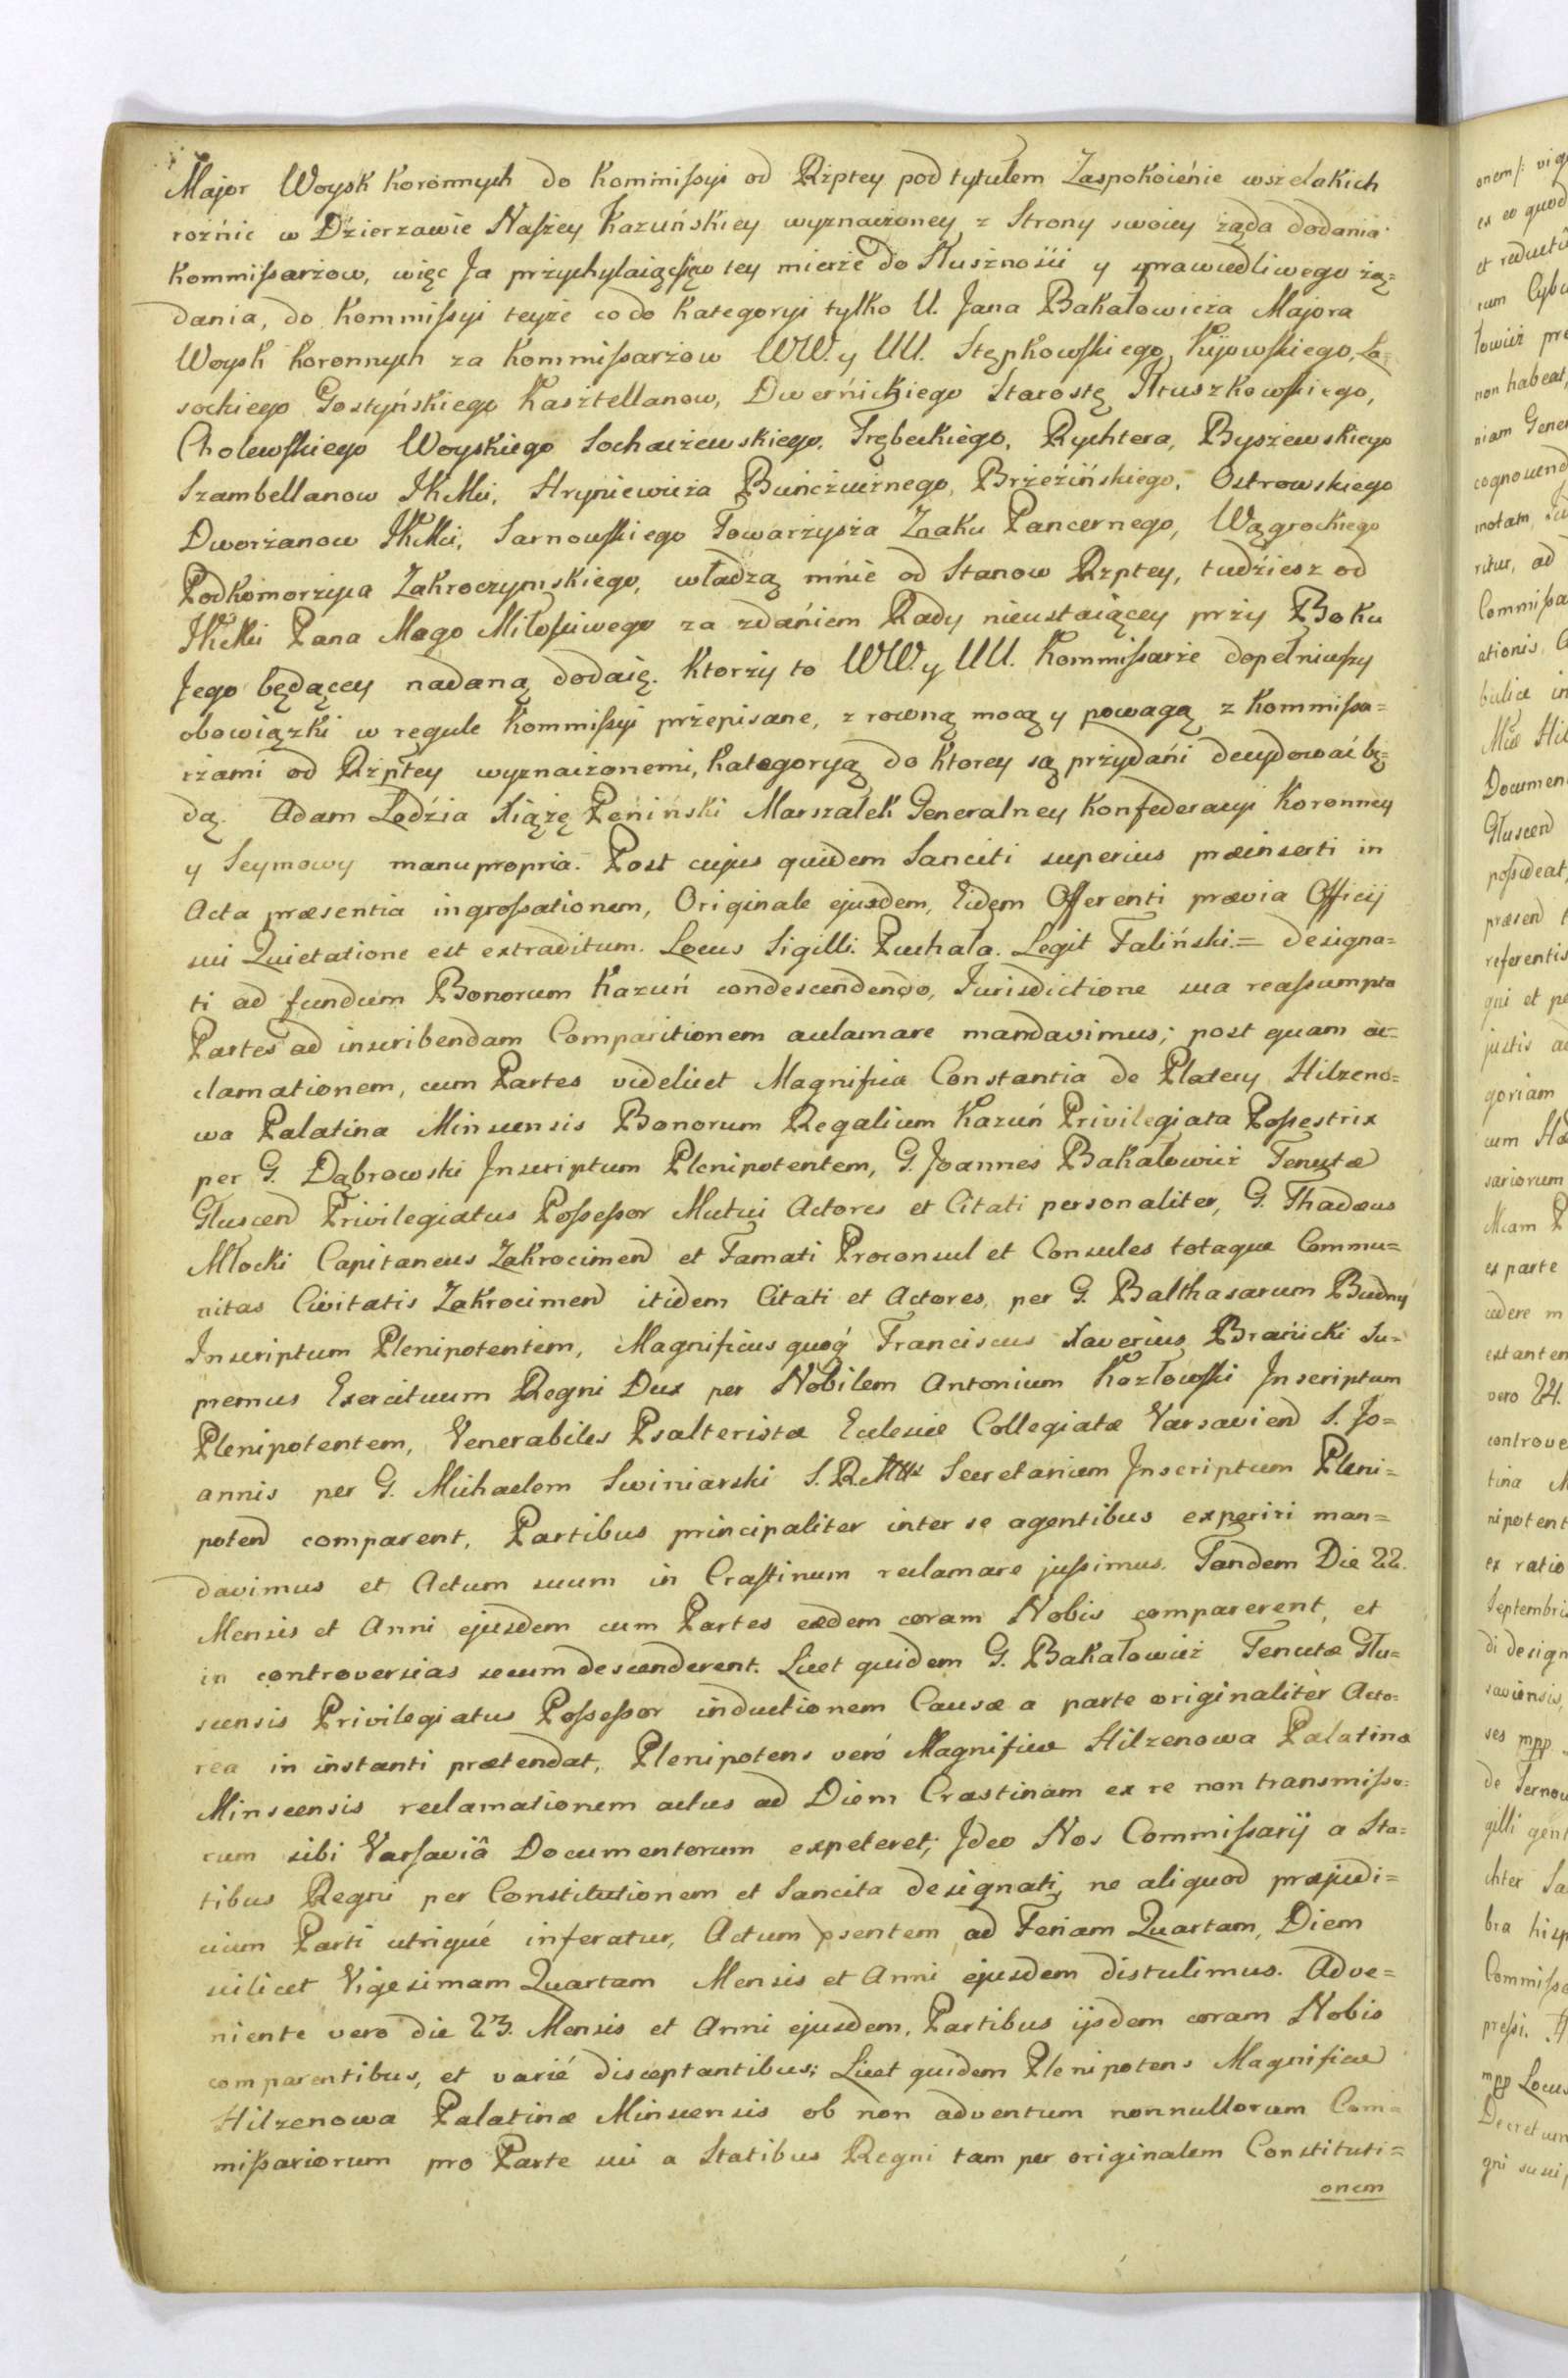 Major Woysk Koronnych do Kommissyi od Rzptey pod tytułem Zaspokoienie wszelakich
rożnic w Dzierzawie Naszey Kazuńskiey wyznaczoney z Strony swoiey ząda dodania
Kommissarzow, więc Ja przychylaiąc się w tey mierze do Słusznosci y sprawiedliwego zą=
dania, do Kommissyi teyże co do Kategoryi tylko U. Jana Bakałowicza Majora
Woysk Koronnych za Kommissarzow WW. y UU. Stępkowskiego Kijowskiego, La=
sockiego Gostyńskiego Kasztellanow, Dwernickiego Starostę Struszkowskiego,
Cholewskiego Woyskiego Sochaczewskiego, Trębeckiego, Rychtera, Byszewskiego
Szambellanow JKMci, Hryniewicza Buńczucznego, Brzezińskiego, Ostrowskiego
Dworzanow JKMci, Sarnowskiego Towarzysza Znaku Pancernego, Wągrockiego
Podkomorzyca Zakroczymskiego, władzą mnie od Stanow Rzptey, tudziesz od
JKMci Pana Mego Miłosciwego za zdaniem Rady nieustaiącey przy Boku
Jego będącey nadaną dodaię. Ktorzy to WW y UU. Kommissarze dopełniwszy
obowiązki w regule Kommissyi przepisane, z rowną mocą y powagą z Kommissa=
rzami od Rzptey wyznaczonemi, Kategoryą do Ktorey są przydani decydować bę=
dą. Adam Lodzia Xiążę Poninski Marszałek Generalney Konfederacyi Koronney
y Seymowy manu propria. Post cujus quidem Sanciti superius præinserti in
Acta præsentia ingrossationem, Originale ejusdem, Eidem Offerenti prævia Officij
sui Quietatione est extraditum. Locus Sigilli. Puchała. Legit Faliński. = designa=
ti ad fundum Bonorum Kazuń condescendendo, Jurisdictione sua reassumpta
Partes ad inscribendam Comparitionem acclamare mandavimus; post quam ac=
clamationem, cum Partes videlicet Magnifica Constantia de Platery Hilzeno=
wa Palatina Minscensis Bonorum Regalium Kazuń Privilegiata Possestrix
per G. Dąbrowski Inscriptum Plenipotentem, G. Joannes Bakałowicz Tenutæ
Gluscen Privilegiatus Possessor Mutui Actores et Citati personaliter, G. Thadæus
Młocki Capitaneus Zakrocimen et Famati Proconsul et Consules totaque Commu=
nitas Civitatis Zakrocimen itidem Citati et Actores, per G. Balthasarum Budny
Inscriptum Plenipotentem, Magnificus quoq́ Franciscus Xaverius Branicki Su=
premus Exercituum Regni Dux per Nobilem Antonium Kozłowski Inscriptum
Plenipotentem, Venerabiles Psalteristæ Ecclesiæ Collegiatæ Varsavien S. Jo=
annis per G. Michaelem Swiniarski S. R. Mttis Secretarium Inscriptum Pleni=
poten comparent, Partibus principaliter inter se agentibus experiri man=
davimus et Actum suum in Crastinum reclamare jussimus. Tandem Die 22.
Mensis et Anni ejusdem cum Partes eædem coram Nobis comparerent, et
in controversias secum descenderent. Licet quidem G. Bakałowicz Tenutæ Glu=
scensis Privilegiatus Possessor inductionem Causæ a parte originalitèr Acto=
rea in instanti prætendat, Plenipotens veró Magnificæ Hilzenowa Palatina
Minscensis reclamationem actus ad Diem Crastinam ex re non transmisso=
rum sibi Varsaviâ Documentorum expeteret; Ideo Nos Commissarij a Sta=
tibus Regni per Constitutionem et Sancita designati, ne aliquod præjudi=
cium Parti utrique inferatur, Actum psentem ad Feriam Quartam, Diem
scilicet Vigesimam Quartam Mensis et Anni ejusdem distulimus. Adve=
niente vero die 23. Mensis et Anni ejusdem, Partibus ijsdem coram Nobis
comparentibus, et varié disceptantibus; Licet quidem Plenipotens Magnificæ
Hilzenowa Palatinæ Minscensis ob non adventum nonnullorum Com=
missariorum pro Parte sui a Statibus Regni tam per originalem Constituti=
onem